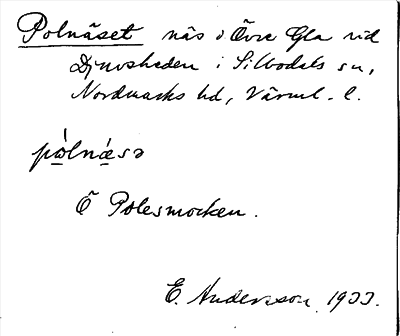 Polnäset näs i Övre Gla vid
Djuvsheden i Silbodals sn,
Nordmarks hd, Värml. l.
pòlnæ̀sə
Ö Polesmocken.
E. Andersson 1933.